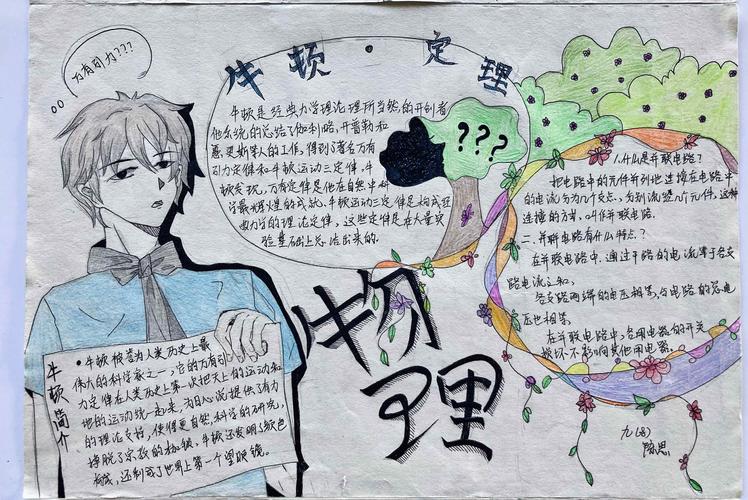 万有引力???
牛顿·定理
牛顿是经典力学理论理所当然的开创者
他系统的总结了伽利略,开普勒和
惠更斯等人的工作,得到了著名万有
引力定律和牛顿运动三定律.牛
顿发现,万有定律是他在自然中科
学最辉煌的成就、牛顿运动三定律是构成经
典力学的理论定律,这些定律是在大量实
验基础上总结出来的.
???
一.什么是并联电路?
把电路中的元件并列地连接在电路中
的电流分为几个支点,分别流经几个元件,这种
连接的方式.叫作并联电路.
二.并联电路有什么特点.?
在并联电路中.通过干路的电流等于各支
路电流之和.
各支路两端的电压相等,与电路的总电
压也相等.
在并联电路中,各用电器的开关
损坏不影响其他用电器.
物
理
牛顿简介
•牛顿被誉为人类历史上最
伟大的科学家之一,它的万有引
力定律在人类历史上第一次把天上的运动和
地的运动统一起来,为日心说提供了有力
的理论支持,使得自然科学的研究,
挣脱了宗教的枷锁.牛顿还发明了颜色
还制成了世界上第一个望眼镜.
九(8)
陈思